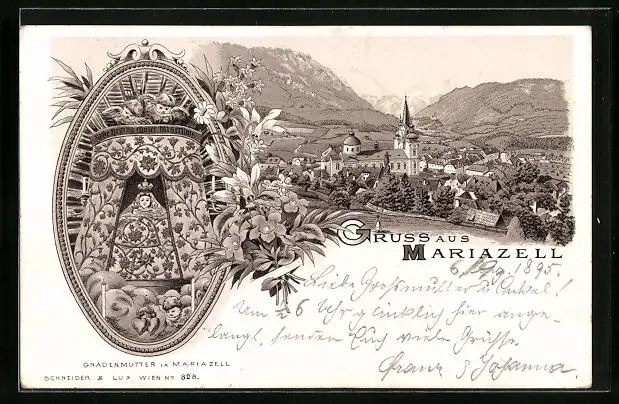 GRUSS AUS
MARIAZELL
6. Aug. 1895.
Liebe Großmutter u. Onkel!
Um 6 Uhr glücklich hier ange-
langt, senden Euch viele Grüsse
Franz & Johanna.
GNADENMUTTER IN MARIAZELL
SCHNEIDER & LUX WIEN No 828.